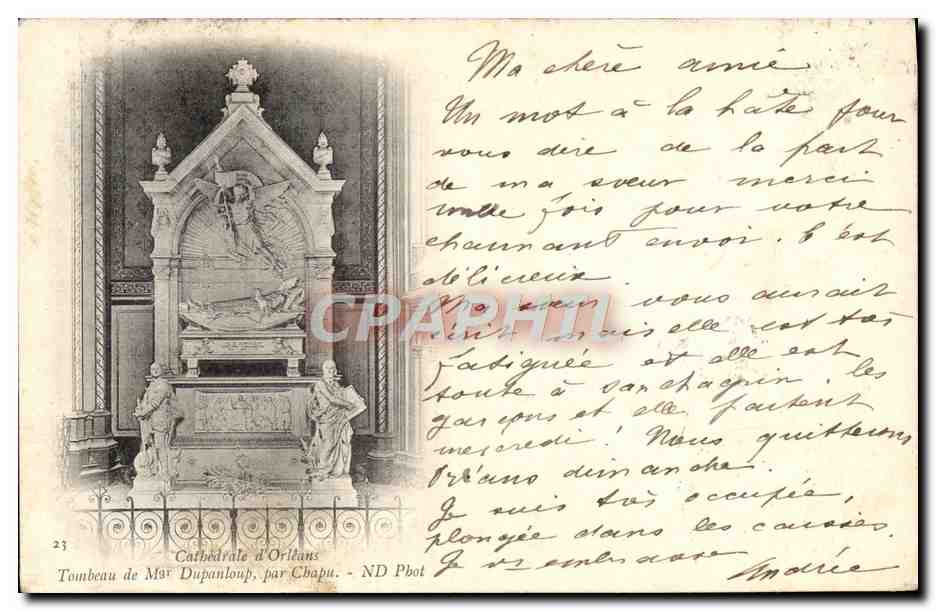 Ma chère amie
Un mot à la hâte pour
vous dire de la part
de ma sœur merci
mille fois pour votre
charmant envoi. C'est
délicieux
Ma sœur vous aurait
écrit mais elle est très
fatiguée et elle est
toute à son chagrin. Les
garçons et elle partent
mercredi! Nous quitterons
Orléans dimanche.
Je suis très occupée,
plongée dans les caisses.
Je vs embrasse
Andrée
CPAPHIL
23
Cathédrale d'Orléans
Tombeau de Mgr Dupanloup, par Chapu. - ND Phot